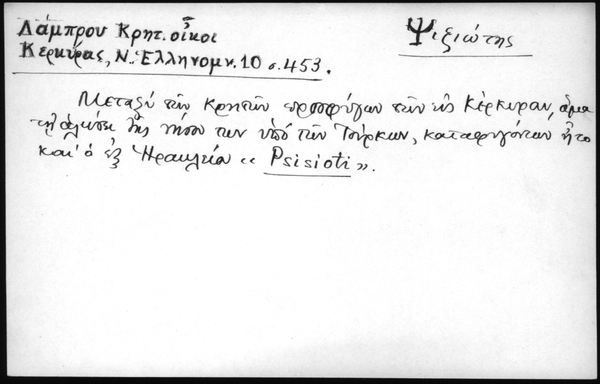 Λάμπρου Κρητ. οἶκοι
Κερκύρας, Ν. Ἑλληνομν. 10 σ. 453.
Ψιξιώτης
Μεταξύ τῶν Κρητῶν προσφύγων τῶν εἰς Κέρκυραν, ἅμα
τῇ ἁλώσει τῆς νήσου των ὑπό τῶν Τούρκων, καταφυγόντων ἦτο
και' ὁ ἐξ Ἡρακλείου « Psisioti ».